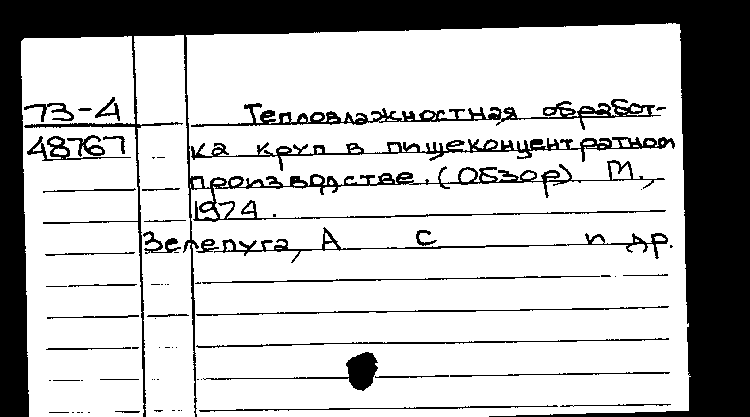 73-4 Тепловлажностная обработ-
48767 ка круп в пищеконцентратном
производстве. (Обзор). М.,
1974.
Зелепуга, А С и др.